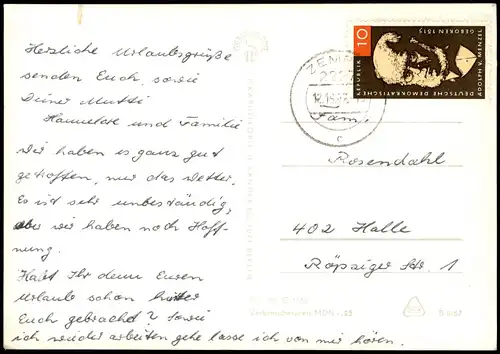 Herzliche Urlaubsgrüße
senden Euch, sowie
Deiner Mutti
Hannelore und Familie
Wir haben es ganz gut
getroffen, nur das Wetter.
Es ist sehr unbeständig,
aber wir haben noch Hoff-
nung.
Habt Ihr denn Euren
Urlaub schon hinter
Euch gebracht? Sowie
ich wieder arbeiten gehe lasse ich von mir hören.
ZEM
10
DEUTSCHE DEMOKRATISCHE
REPUBLIK
ADOLPH V. MENZEL
GEBOREN 1815
c
Fam.
Rosendahl
402 Halle
Röpziger Str. 1
Verbraucherpreis MDN